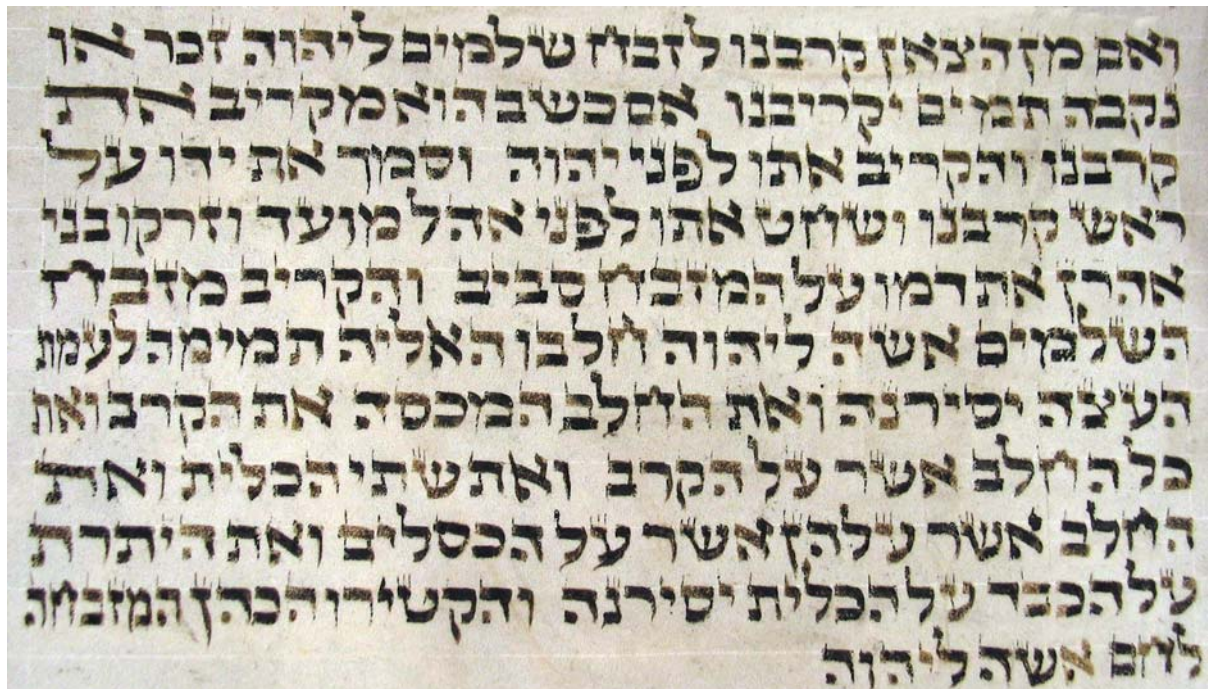 ואם מן הצאן קרבנו לזבח שלמים ליהוה זכר או
נקבה תמים יקריבנו אם כשב הוא מקריב את
קרבנו והקריב אתו לפני יהוה וסמך את ידו על
ראש קרבנו ושחט אתו לפני אהל מועד וזרקו בני
אהרן את דמו על המזבח סביב והקריב מזבח
השלמים אשה ליהוה חלבו האליה תמימה לעמת
העצה יסירנה ואת החלב המכסה את הקרב ואת
כל החלב אשר על הקרב ואת שתי הכלית ואת
החלב אשר עלהן אשר על הכסלים ואת היתרת
על הכבד על הכלית יסירנה והקטירו הכהן המזבחה
לחם אשה ליהוה